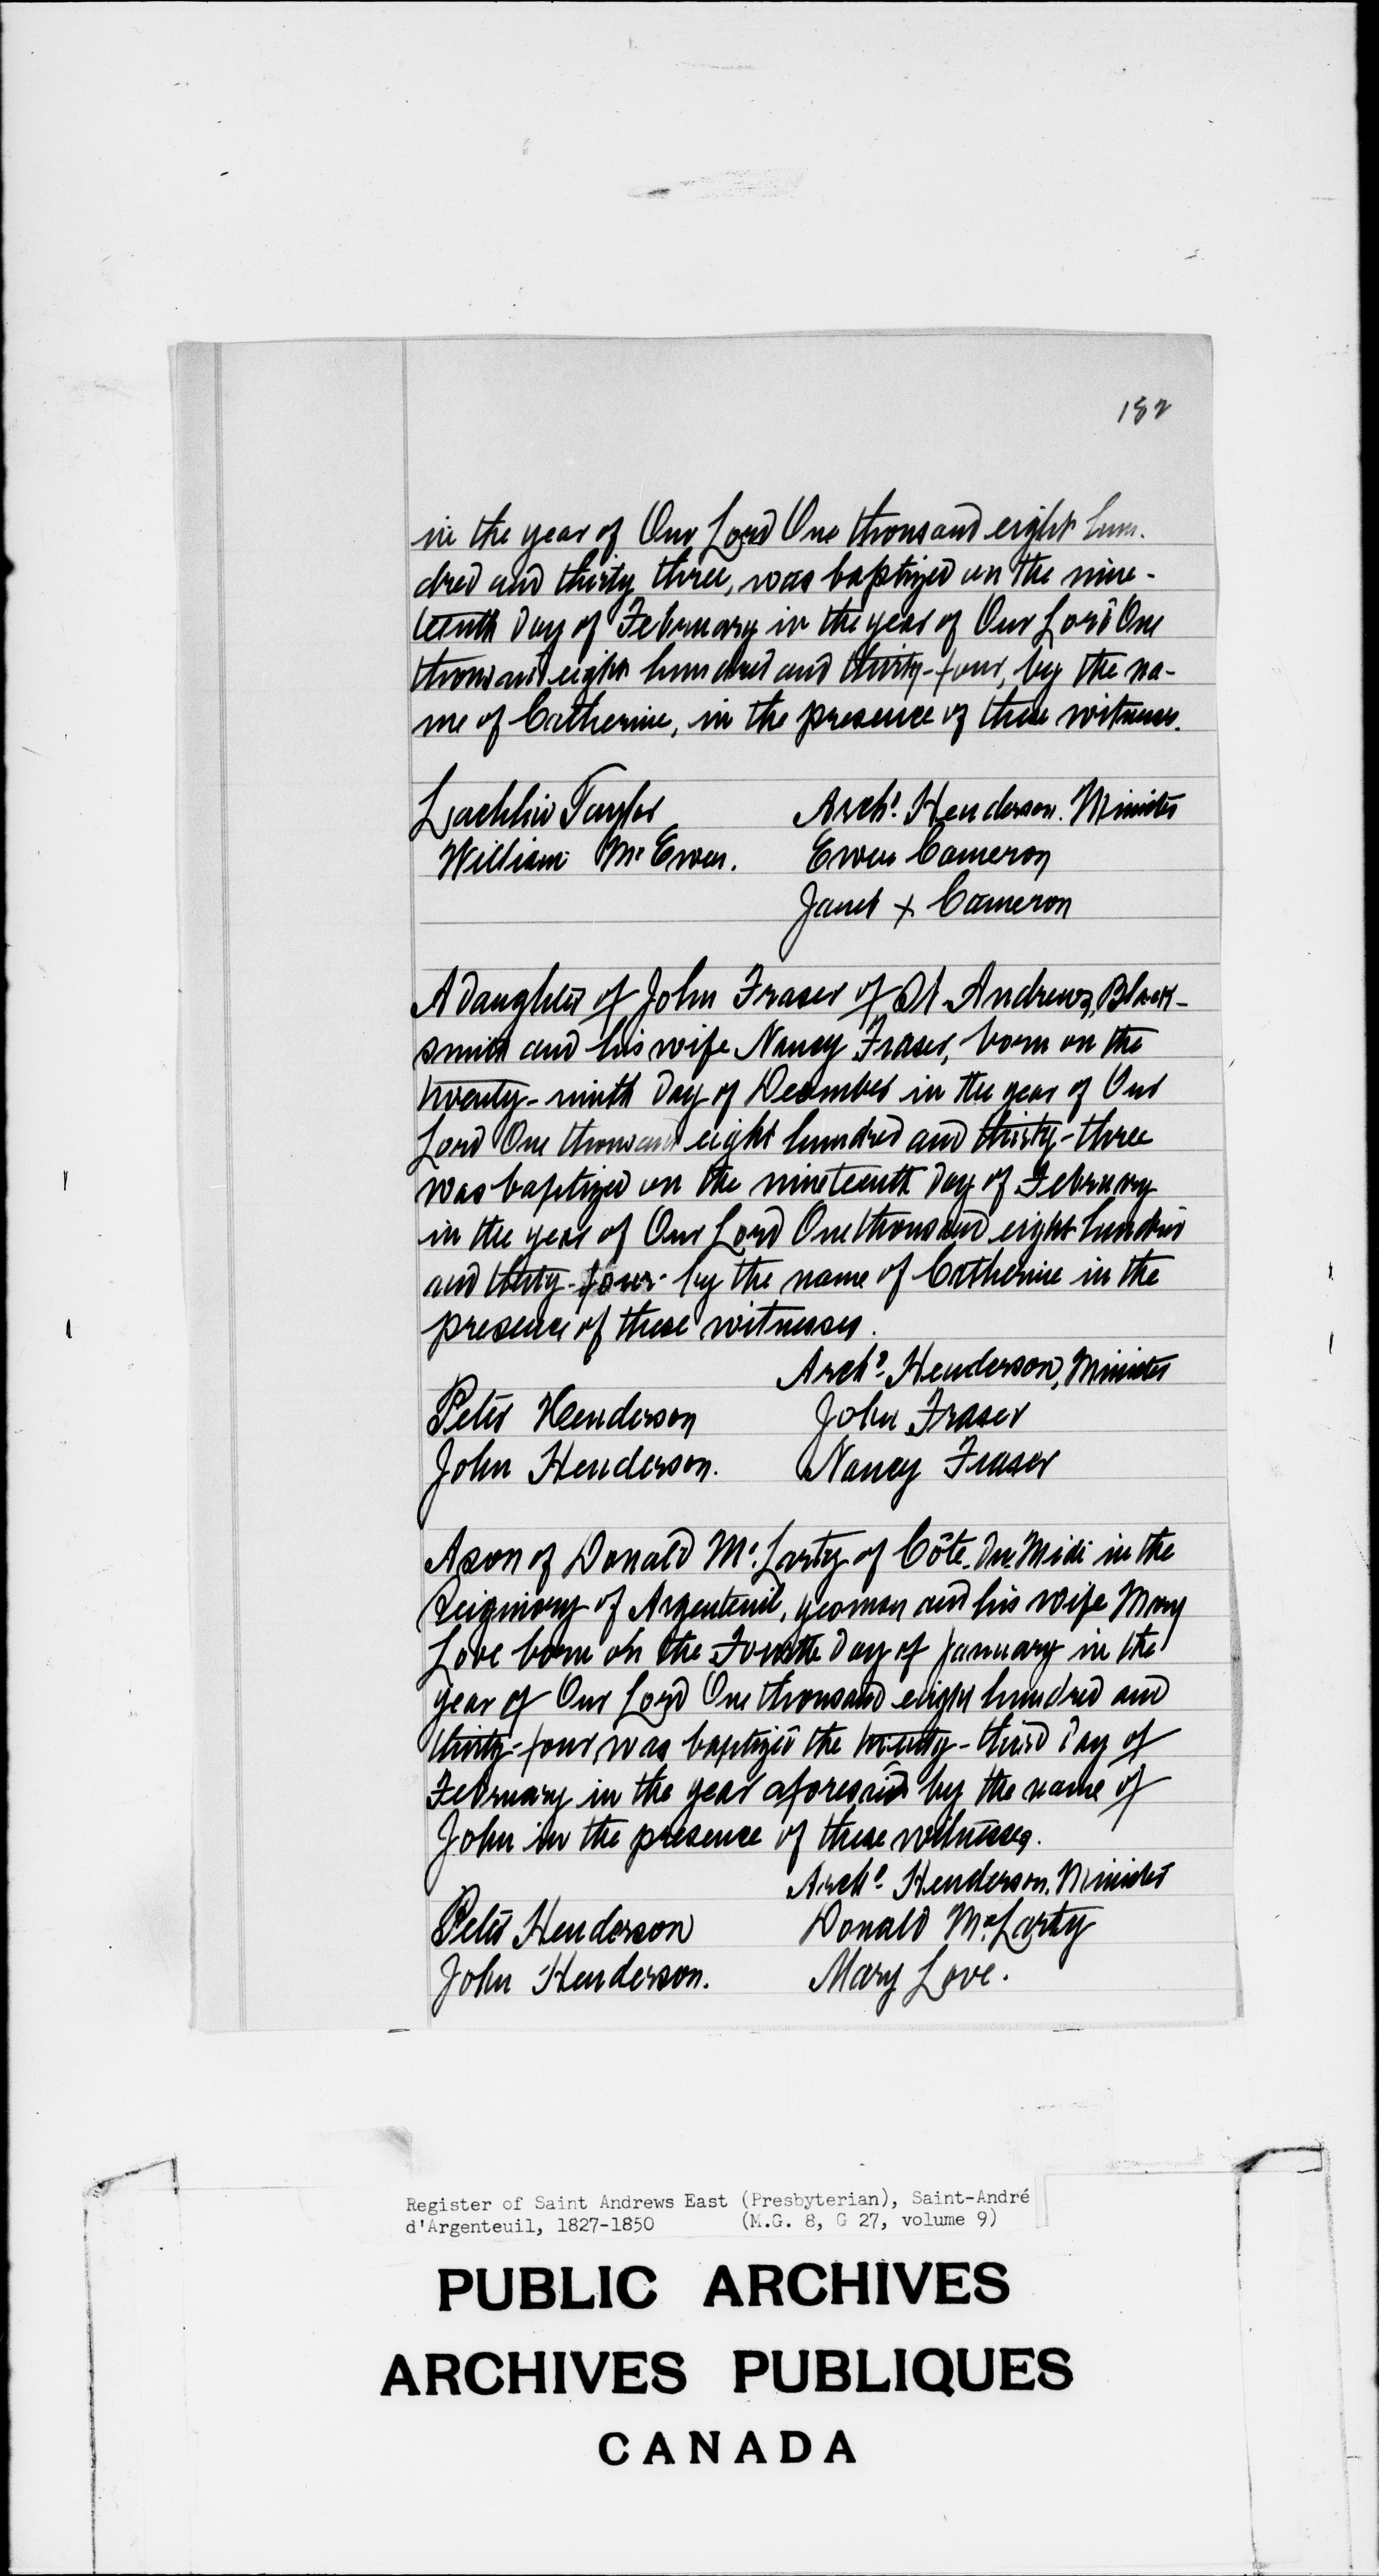 182
in the year of Our Lord One thousand eight hun-
dred and thirty three, was baptized on the nine-
teenth day of February in the year of Our Lord One
thousand eight hundred and thirty-four, by the na-
me of Catherine, in the presence of these witnesses.
Lachlin Taylor Archd. Henderson. Minister
William Mc Ewen. Ewen Cameron
Janet + Cameron
A daughter of John Fraser of St. Andrews, Black-
smith and his wife Nancy Fraser, born on the
twenty-ninth day of December in the year of Our
Lord One thousand eight hundred and thirty-three
was baptized on the nineteenth day of February
in the year of Our Lord One thousand eight hundred
and thirty-four by the name of Catherine in the
presence of these witnesses.
Archd. Henderson, Minister
Peter Henderson John Fraser
John Henderson. Nancy Fraser
A son of Donald Mc. Larty of Côte-du-Midi in the
Seigniory of Argenteuil, yeoman and his wife Mary
Love born on the Fourth day of January in the
year of Our Lord One thousand eight hundred and
thirty-four, was baptized the twenty-third day of
February in the year aforesaid by the name of
John in the presence of these witnesses.
Archd. Henderson, Minister
Peter Henderson Donald Mc. Larty
John Henderson. Mary Love.
Register of Saint Andrews East (Presbyterian), Saint-André
d'Argenteuil, 1827-1850 (M.G. 8, G 27, volume 9)
PUBLIC ARCHIVES
ARCHIVES PUBLIQUES
CANADA